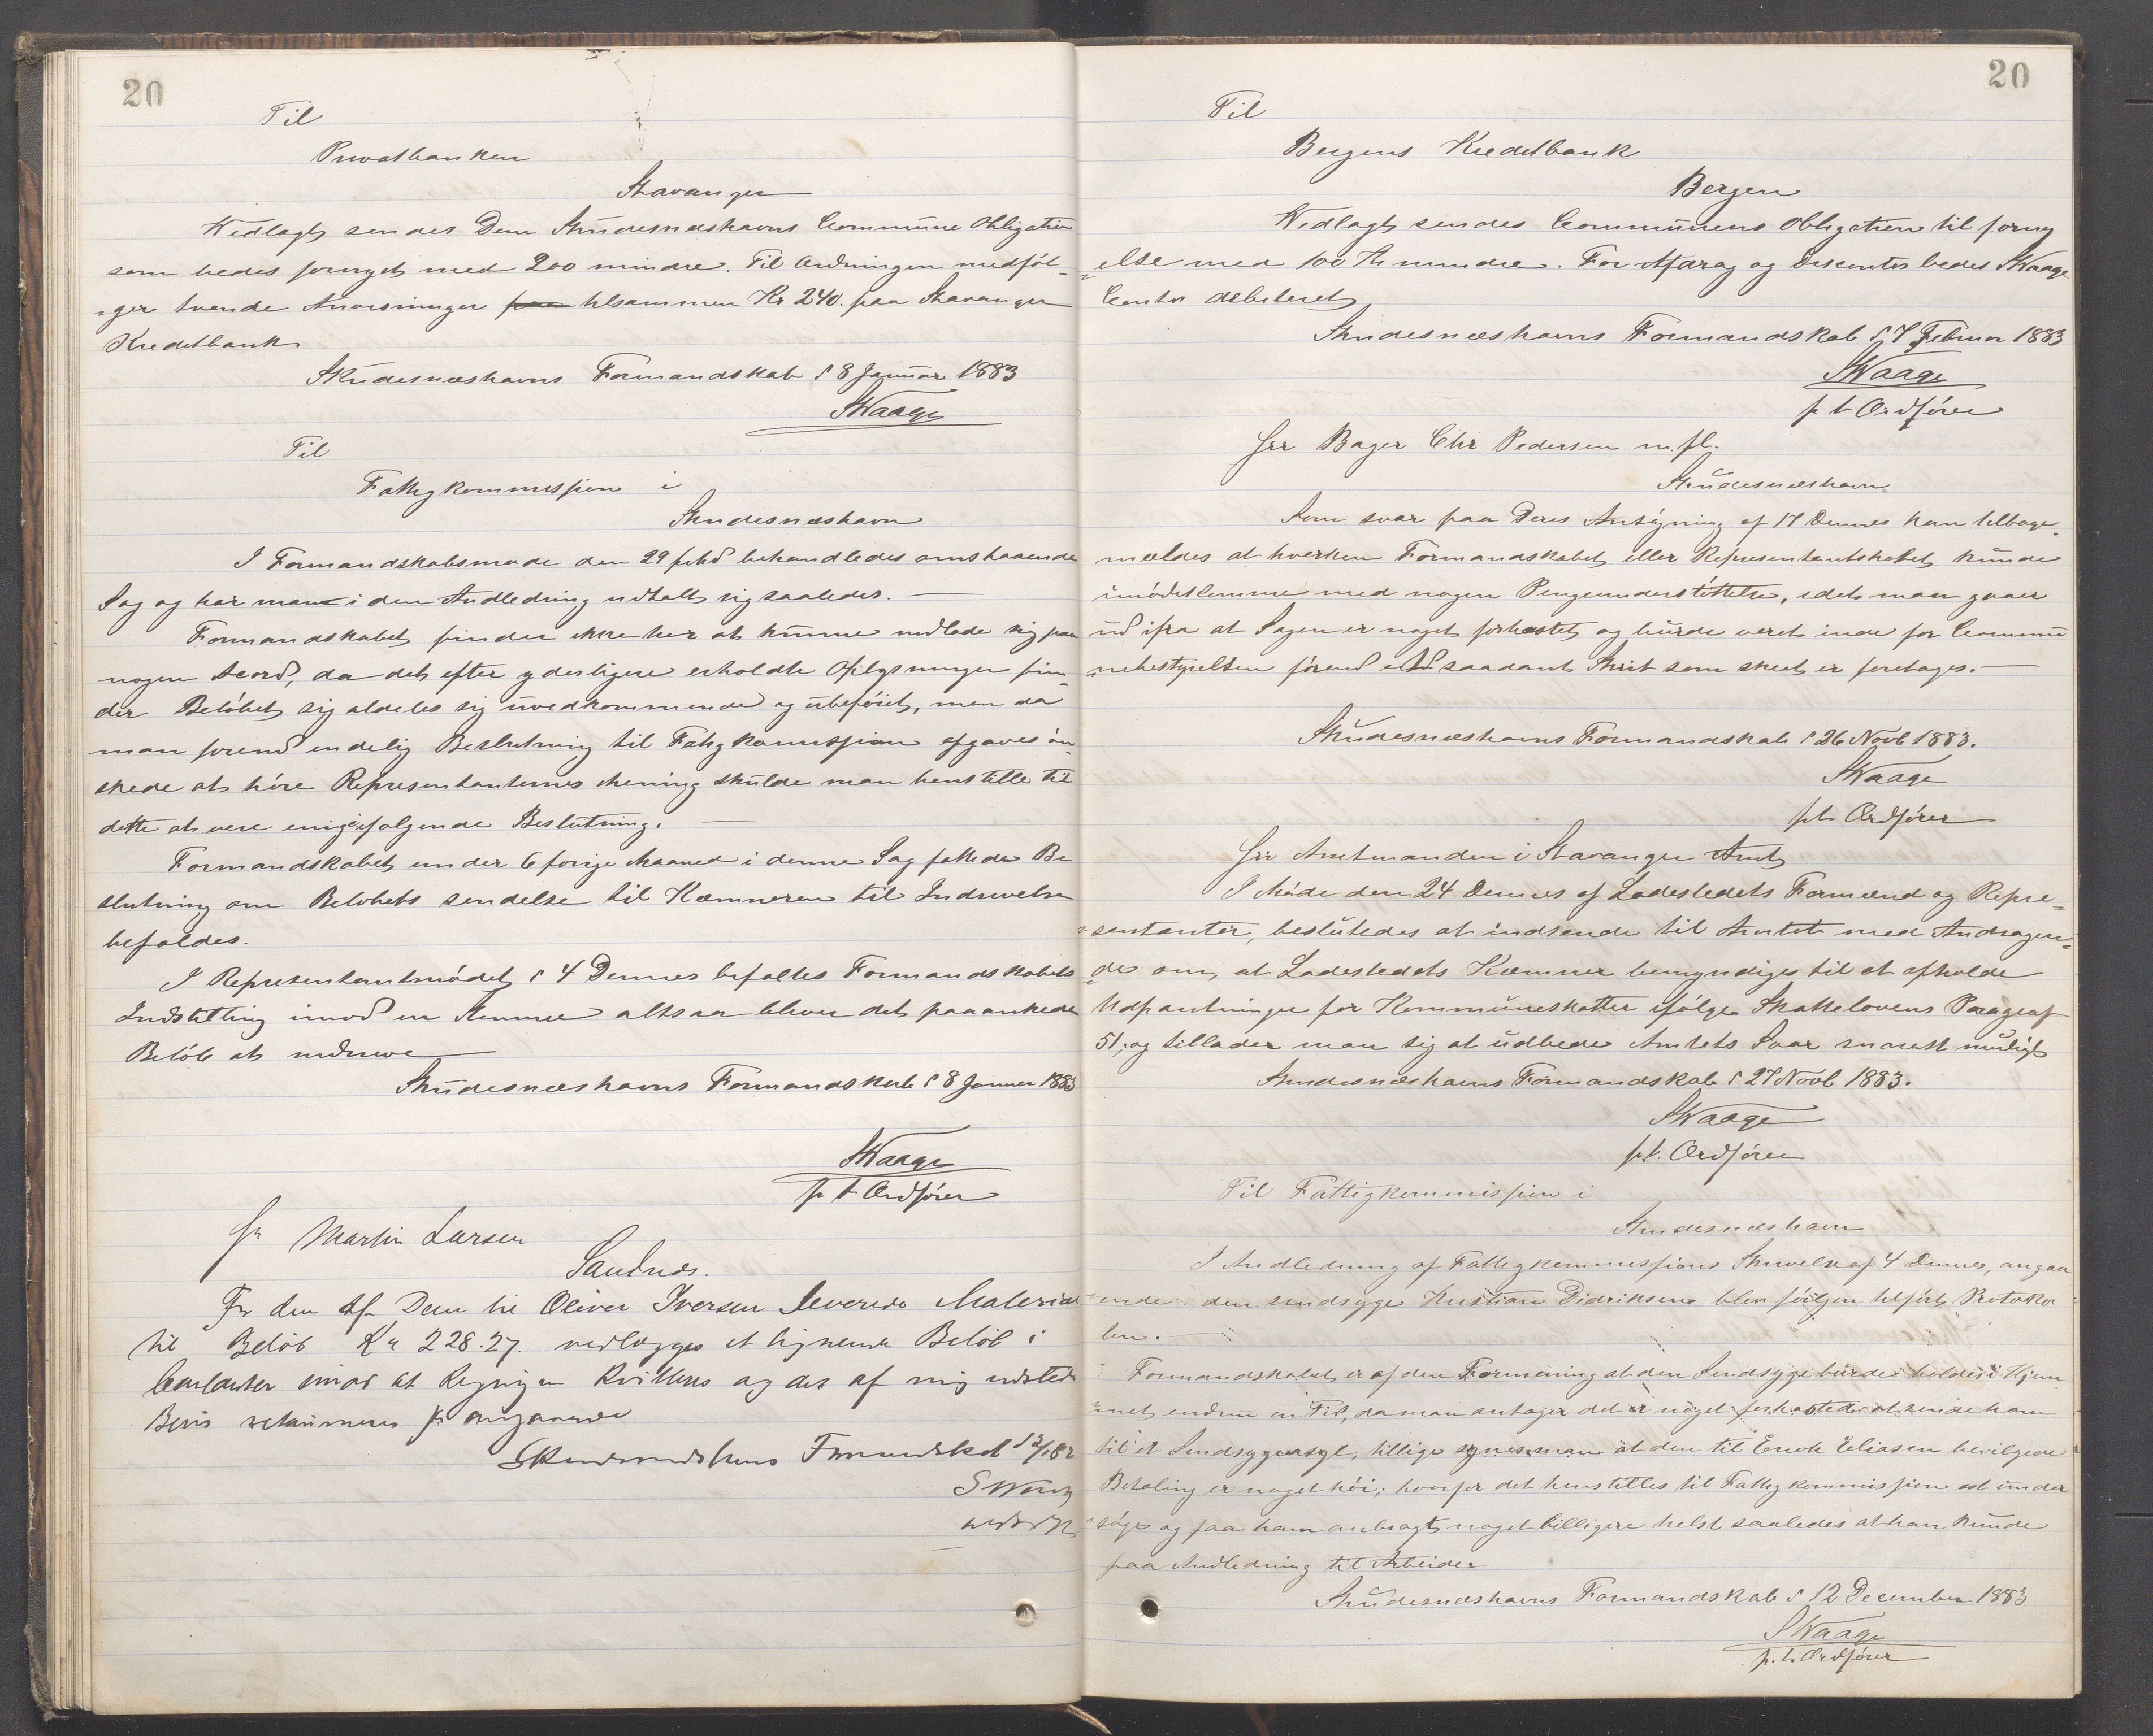 20
Til
Privatbanken
Stavanger
Vedlagt sendes Dem Skudesneshavns Commune Obligation
som bedes fornyet med 200 mindre. Til Ordningen medföl-
-ger tvende Anvisninger paa tilsammen Kr 240. paa Stavanger
Kreditbank
Skudesneshavns Formandskab d 8 Januar 1883
SWaage
Til
Fattigkommissjion i
Skudesneshavn
I Formandskabsmøde den 29 behandledes omstaaende
Sag og har man i den Andledning udtalt sig saaledes. —
Formandskabet finder ikke her at kunne indlade sig paa
nogen Acord, da det efter yderligere erholdte Oplysninger fin-
der Belöbet sig aldeles sig uvedkommende og ubeföiet, men da
man forend endelig Beslutning til Fattigkommissjion afgaves ön-
skede at höre Representanternes Mening skulde man henstille til
dette at være enig i følgende Beslutning. —
Formandskabet under 6 forrige Maaned i denne Sag fattede Be
slutning om Belöbets sendelse til Kæmneren til Inddrivelse
befaldes.
I Representantmödet d 4 Dennes befaltes Formandskabets
Indstilling imod en Stemme altsaa bliver det paaankede
Belöb at inddrive
Skudesneshavns Formandskab d 8 Januar 1883
SWaage
p t Ordförer
Hr Martin Larsen
Sandnes.
For den af Dem til Oliver Iversen Leverede Material
til Belöb Kr 228.27. vedlægges et lignende Belöb i
imod at Regningen Kvitteres og det af mig udstedte
Bevis returneres
Formandskab
SWaage
20
Til
Bergens Kreditbank
Bergen
Vedlagt sendes Communens Obligation til forny
-else med 100 Kr mindre. For Afdrag og Disconto bedes SWaage
Conto debiteret
Skudesneshavns Formandskab d 7 Februar 1883
SWaage
p t Ordförer
Hrr Bager Chr Pedersen m.fl.
Skudesneshavn
Som svar paa Deres Ansögning af 17 Dennes kan tilbage-
meldes at hverken Formandskabet eller Representantskabet kunde
imödekomme med nogen Pengeunderstöttelse, idet man gaaer
ud ifra at Sagen er noget forhastet og burde veret inde for Commu
-nebestyrelsen förend et saadant Skrit som skeet er foretages. —
Skudesneshavns Formandskab d 26 Novb 1883.
SWaage
p.t. Ordförer
Hrr Amtmanden i Stavanger Amt
I Möde den 24 Dennes af Ladestedets Formænd og Repre-
-sentanter, beslutedes at indsende til Amtet med Andragen-
-de om, at Ladestedets Kæmner bemyndiges til at afholde
Udpantninger for Kommuneskatter ifölge Skattelovens Paragraf
51, og tillader man sig at udbede Amtets Svar snarest muligt
Skudesneshavns Formandskab d 27 Novb 1883.
SWaage
p.t. Ordförer
Til Fattigkommissjion i
Skudesneshavn
I Andledning af Fattigkommissjions Skrivelse af 4 Dennes, angaa
-ende den sindsyge Kristian Didriksen blev tilfört Protoko
len. —
Formandskabet er af den Formening at den Sindsyge burde holdes i Hjem
-met endnu en Tid, da man antager det er noget forhastet at sende ham
til et Sindsygeasyl, tillige synes man at den til Enok Eliasen bevilgede
Betaling er noget höi; hvorfor det henstilles til Fattigkommissjion at under
-söge og faa ham anbragt noget billigere helst saaledes at han kunde
faa Andledning til Arbeide
Skudesneshavns Formandskab d 12 December 1883
SWaage
p.t. Ordförer